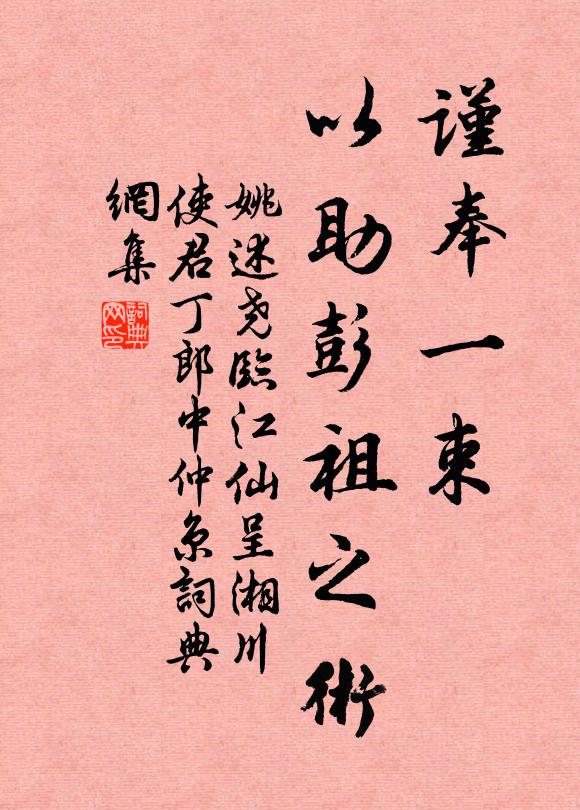 謹奉一束
以助彭祖之術
姚述堯臨江仙呈湘川
使君丁郎中仲京詞典
網集
詞典
网印